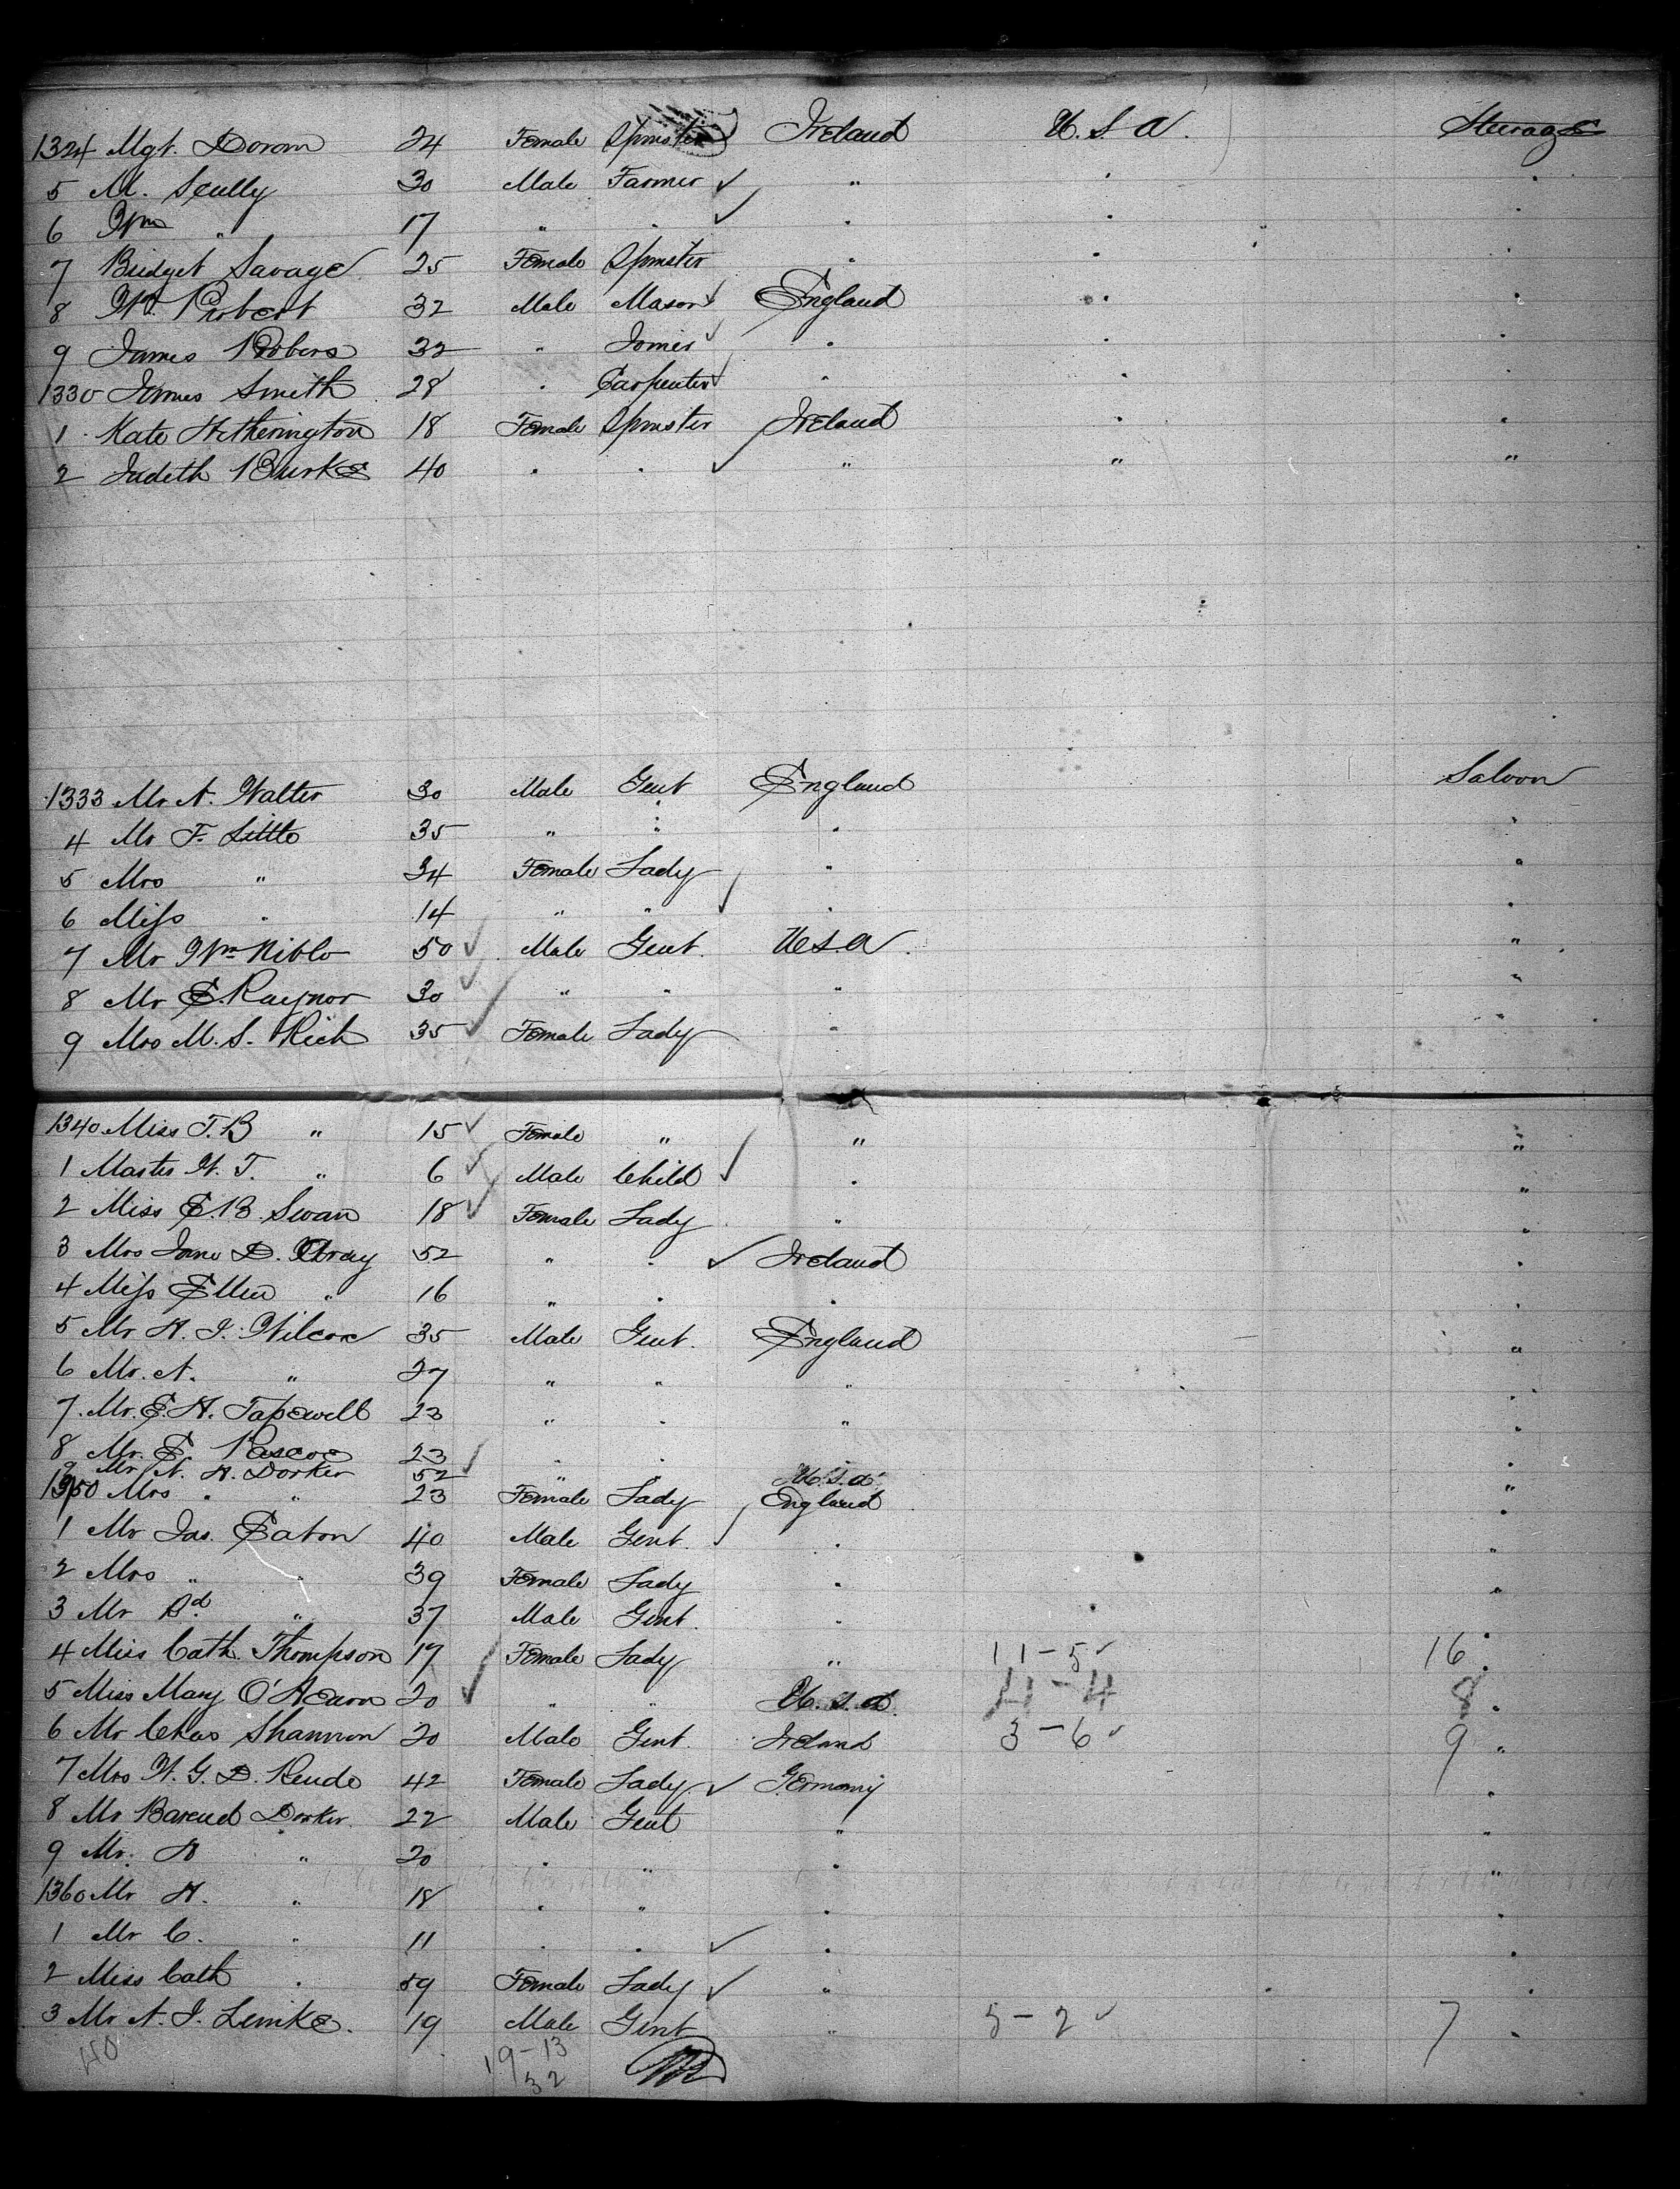 1324 Mgt. Doran 24 Female Spinster Ireland U.S.A. Steerage
5 M. Scully 30 Male Farmer "
6 Wm " 17 " "
7 Bridget Savage 25 Female Spinster "
8 W. Probert 32 Male Mason England
9 James Robers 32 " Joiner "
1330 James Smith 28 " Carpenter "
1 Kate Hetherington 18 Female Spinster Ireland "
2 Judeth Burke 40 " " " " "
1333 Mr A. Walter 30 Male Gent England Saloon
4 Mr F. Little 35 " " " "
5 Mrs " 34 Female Lady " "
6 Miss " 14 " " " "
7 Mr Wm Niblo 50 Male Gent. U.S.A. "
8 Mr E. Raynor 30 " " " "
9 Mrs M. S. Rich 35 Female Lady " "
1340 Miss T.B " 15 Female " " "
1 Master W. T. " 6 Male Child " "
2 Miss E.B. Swan 18 Female Lady " "
3 Mrs Jane D. 52 " " Ireland "
4 Miss Ellen " 16 " " " "
5 Mr H. J. Wilcox 35 Male Gent. England "
6 Mr. A. " 27 " " " "
7 Mr. E. H. Tapewell 23 " " " "
8 Mr. E. Pascoe 23 " " "
9 Mr A. H. Dorker 52 " " U.S.A. "
1350 Mrs " " 23 Female Lady England "
1 Mr Jas. Eaton 40 Male Gent. " "
2 Mrs " " 39 Female Lady " "
3 Mr Rd. " 37 Male Gent. " "
4 Miss Cath. Thompson 19 Female Lady " 11-5 16 "
5 Miss Mary O'Hearn 20 " " U.S.A. 4-4 8 "
6 Mr Chas Shannon 20 Male Gent. Ireland 3-6 9 "
7 Mrs W. G. D. 42 Female Lady Germany "
8 Mr Barend Dorker 22 Male Gent " "
9 Mr. " 20 " " " "
1360 Mr H. " 18 " " " "
1 Mr C. " 11 " " " "
2 Miss Cath " Female Lady " "
3 Mr A. J. Lemke. 19 Male Gent " 5-2 7 "
40 19-13
32